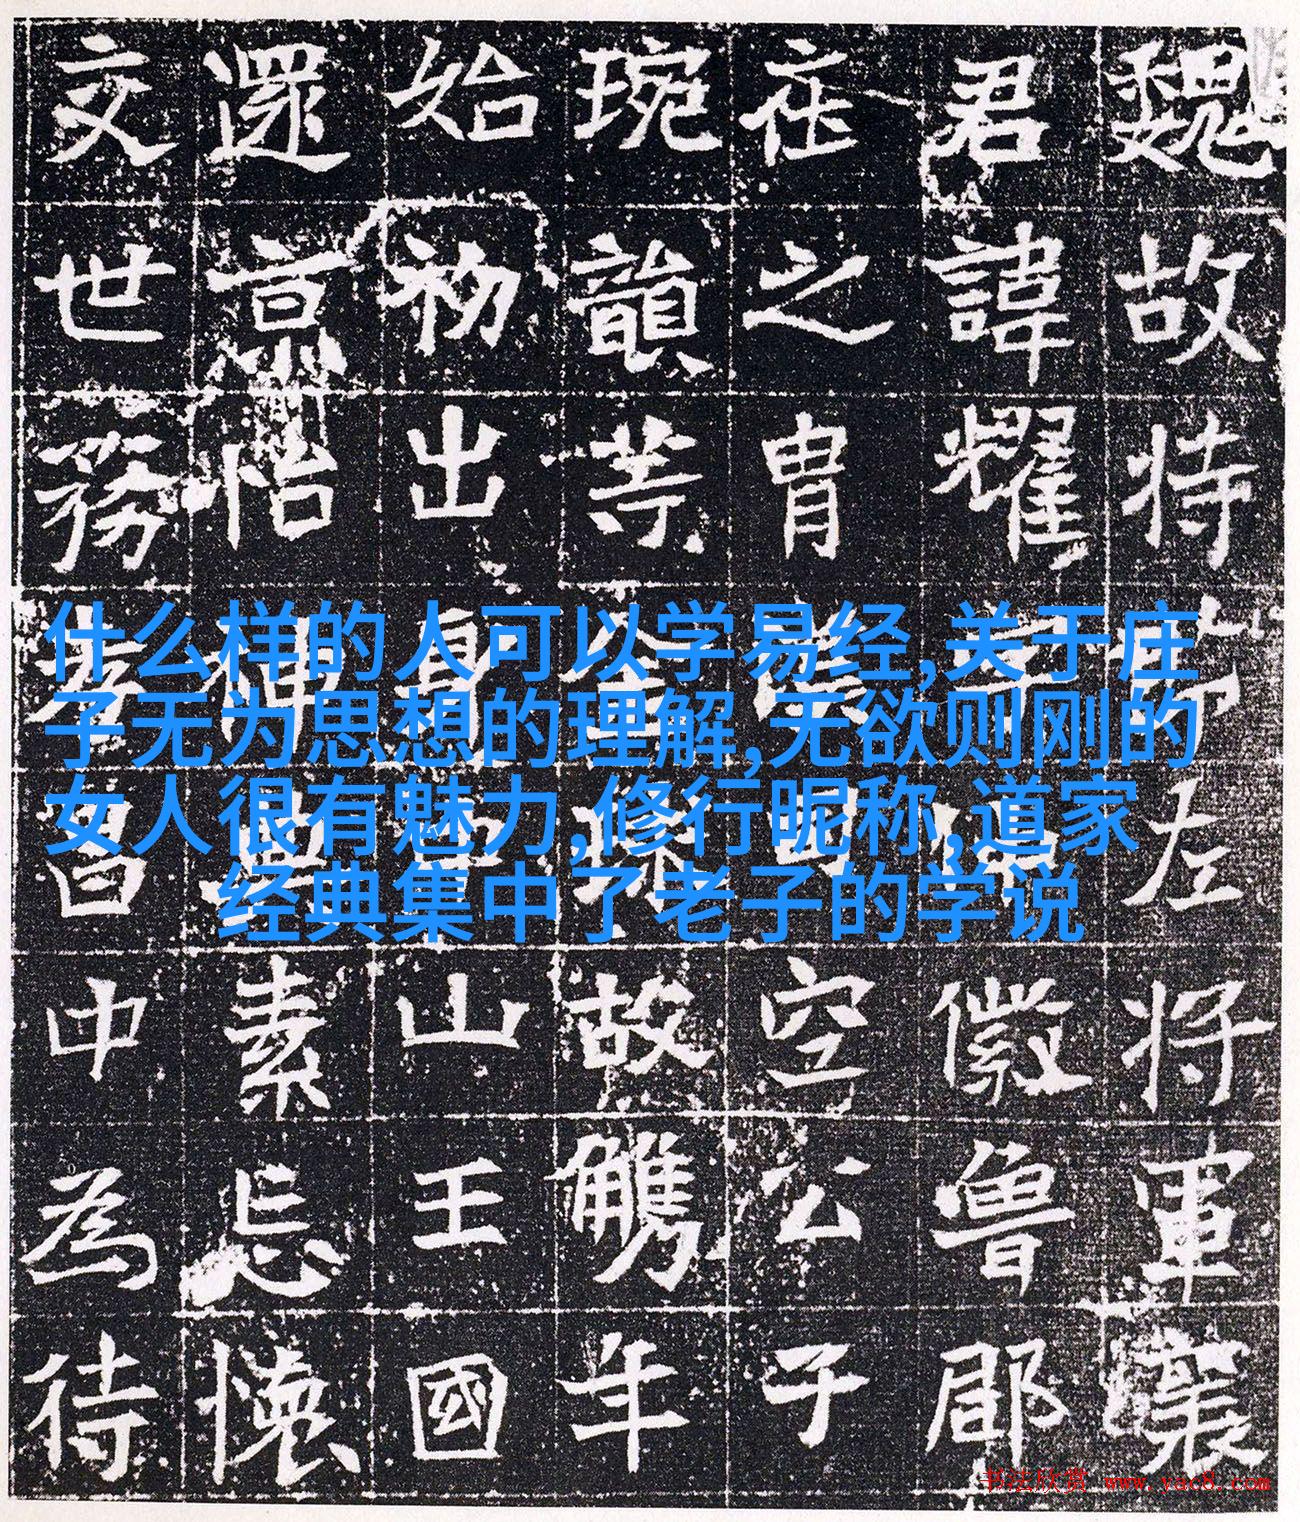 魏故持左将軍襄
君諱耀徽魯郡
在之胄空公子
琬韻崇故觿年
始初出身山王國
還京怡神典素忘懷
交世務中為待
什么样的人可以学易经,关于庄
子无为思想的理解,无欲则刚的
女人很有魅力,修行昵称,道家
经典集中了老子的学说
书法欣赏 www.yac8.com